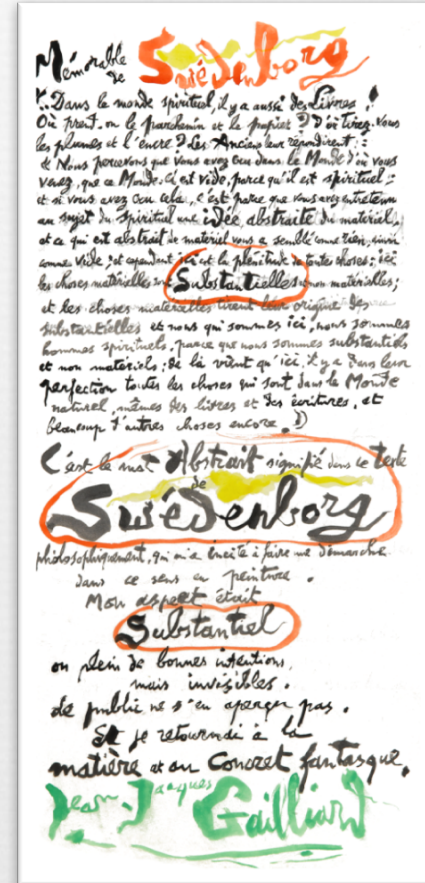 Mémorable
de Swédenborg
Dans le monde spirituel, il y a aussi des Livres !
Où prend-on le parchemin et le papier ? D'où tirez-vous
les plumes et l'encre ? Les Anciens leur répondirent :
Nous percevons que vous avez cru dans le Monde d'où vous
venez, que ce Monde-ci est vide, parce qu'il est spirituel :
et si vous avez cru cela, c'est parce que vous avez entretenu
au sujet du spirituel une idée abstraite du matériel,
et ce qui est abstrait de matériel vous a semblé comme rien, ainsi
comme vide ; et cependant ici est la plénitude de toutes choses ; ici
les choses matérielles sont Substantielles et non matérielles ;
et les choses matérielles tirent leur origine des
substantielles et nous qui sommes ici, nous sommes
hommes spirituels, parce que nous sommes substantiels
et non matériels ; de là vient qu'ici, il y a dans leur
perfection toutes les choses qui sont dans le Monde
naturel, mêmes des livres et des écritures, et
beaucoup d'autres choses encore.
C'est le mot Abstrait signifié dans ce texte
de
Swédenborg
philosophiquement, qui m'a incité à faire une démarche
dans ce sens en peinture.
Mon aspect était
Substantiel
on plein de bonnes intentions,
mais invisibles.
Le public ne s'en aperçu pas.
Et je retournai à la
matière et au Concret fantasque.
Jean-Jacques Gailliard